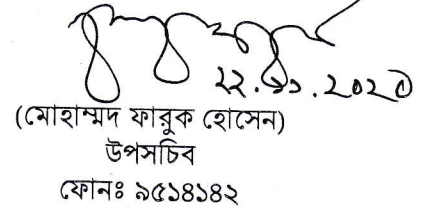 ২২.১১.২০২৫
(মোহাম্মদ ফারুক হোসেন)
উপসচিব
ফোনঃ ৯৫১৪১৪২